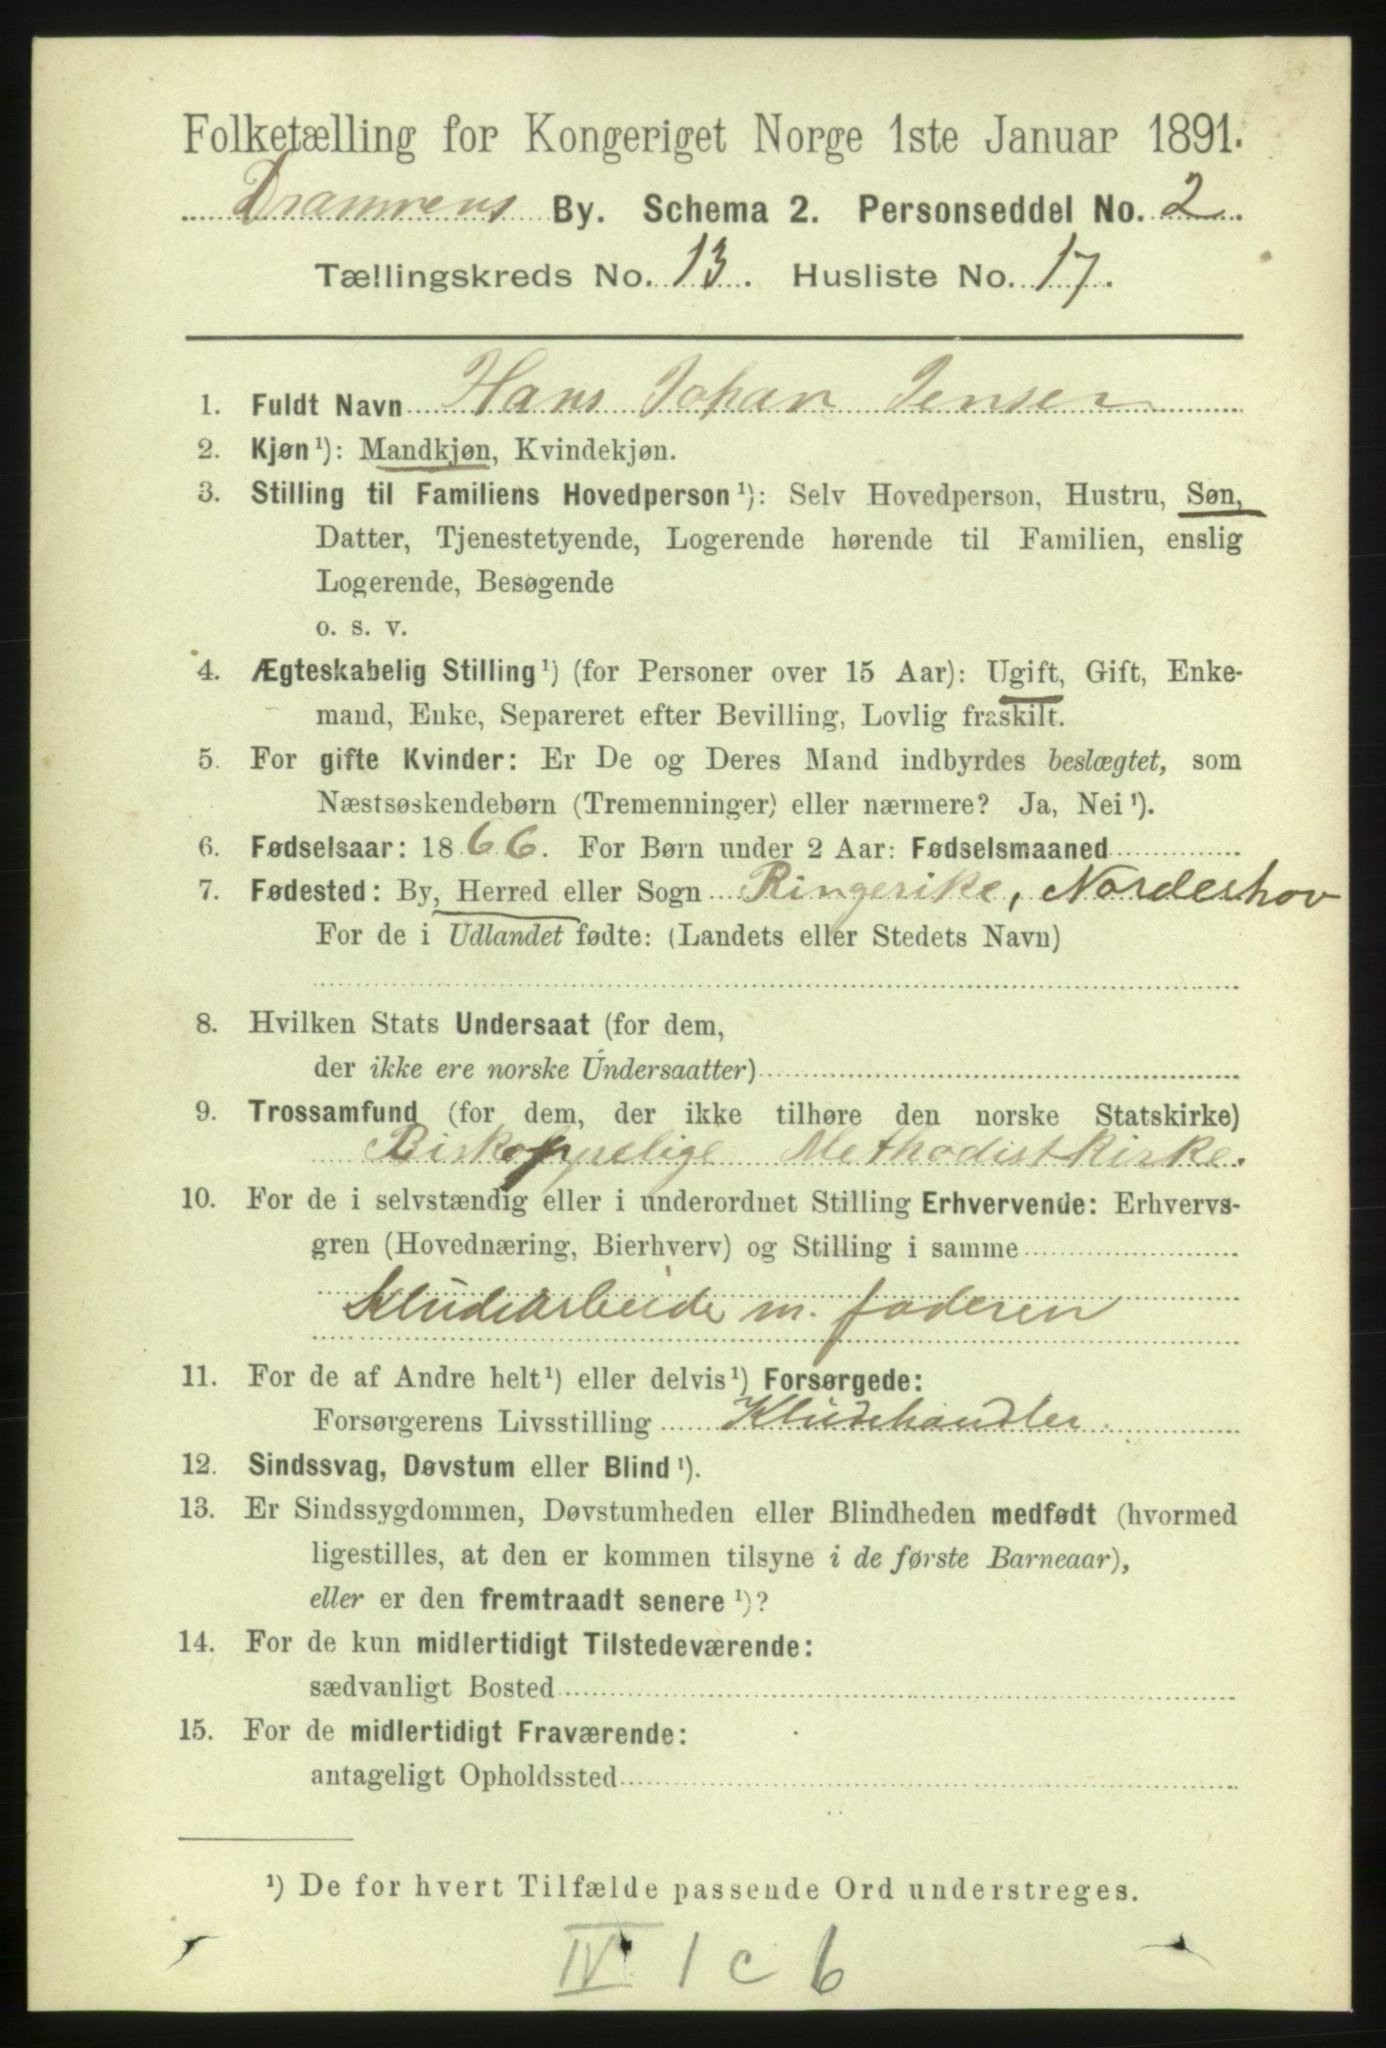 Folketælling for Kongeriget Norge 1ste Januar 1891.
Drammens By. Schema 2. Personseddel No. 2.
Tællingskreds No. 13. Husliste No. 17.
1. Fuldt Navn Hans Johan Jensen
2. Kjøn ¹): Mandkjøn, Kvindekjøn.
3. Stilling til Familiens Hovedperson ¹): Selv Hovedperson, Hustru, Søn,
Datter, Tjenestetyende, Logerende hørende til Familien, enslig
Logerende, Besøgende
o. s. v.
4. Ægteskabelig Stilling ¹) (for Personer over 15 Aar): Ugift, Gift, Enke-
mand, Enke, Separeret efter Bevilling, Lovlig fraskilt.
5. For gifte Kvinder: Er De og Deres Mand indbyrdes beslægtet, som
Næstsøskendebørn (Tremenninger) eller nærmere? Ja, Nei ¹).
6. Fødselsaar: 1866. For Børn under 2 Aar: Fødselsmaaned
7. Fødested: By, Herred eller Sogn Ringerike, Norderhov
For de i Udlandet fødte: (Landets eller Stedets Navn)
8. Hvilken Stats Undersaat (for dem,
der ikke ere norske Undersaatter)
9. Trossamfund (for dem, der ikke tilhøre den norske Statskirke)
Biskoppelige Methodistkirke.
10. For de i selvstændig eller i underordnet Stilling Erhvervende: Erhvervs-
gren (Hovednæring, Bierhverv) og Stilling i samme
Kludearbeide m. faderen
11. For de af Andre helt ¹) eller delvis ¹) Forsørgede:
Forsørgerens Livsstilling Kludehandler.
12. Sindssvag, Døvstum eller Blind ¹).
13. Er Sindssygdommen, Døvstumheden eller Blindheden medfødt (hvormed
ligestilles, at den er kommen tilsyne i de første Barneaar),
eller er den fremtraadt senere ¹)?
14. For de kun midlertidigt Tilstedeværende:
sædvanligt Bosted
15. For de midlertidigt Fraværende:
antageligt Opholdssted
¹) De for hvert Tilfælde passende Ord understreges.
IV 1 c 6